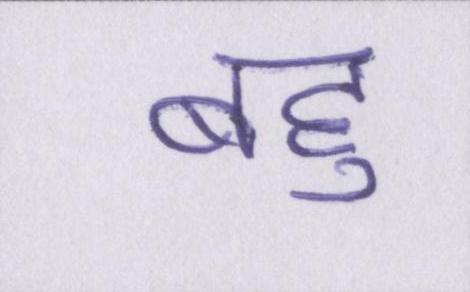 बहु